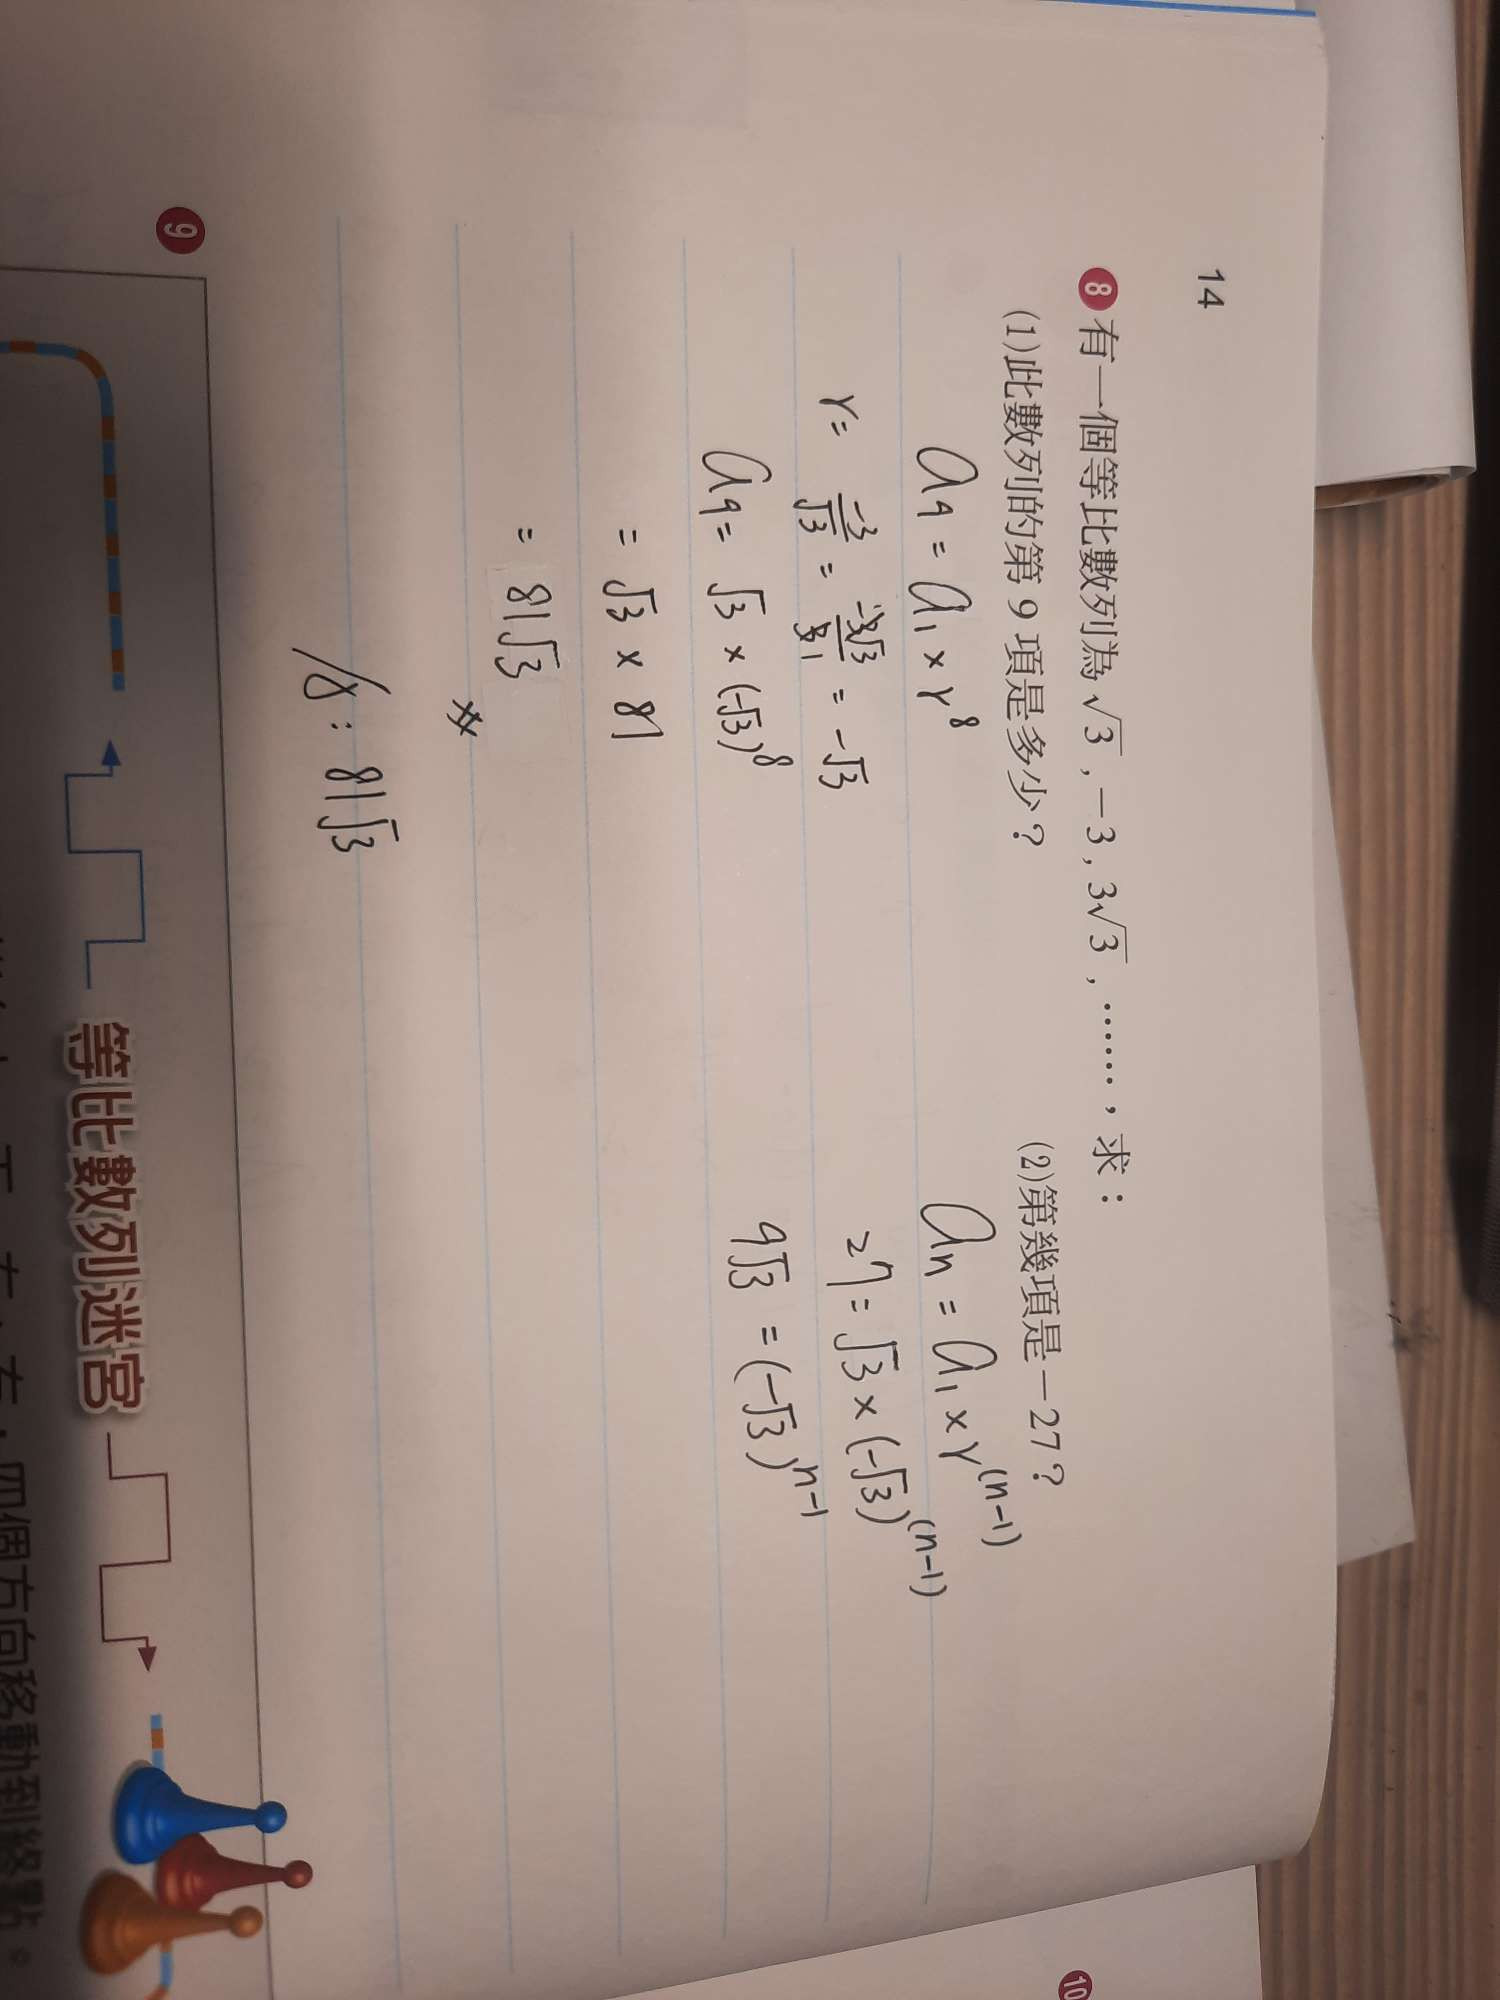 14
8 有一個等比數列為√3 , -3 , 3√3 , ……，求：
(1)此數列的第 9 項是多少？
a₉ = a₁ × r⁸
r = -3/√3 = -3√3/3 1 = -√3
a₉ = √3 × (-√3)⁸
= √3 × 81
= 81√3
A : 81√3
(2)第幾項是-27？
aₙ = a₁ × r⁽ⁿ⁻¹⁾
27 = √3 × (-√3)⁽ⁿ⁻¹⁾
9√3 = (-√3)ⁿ⁻¹
9
等比數列迷宮
四個方向移動到終點。
10